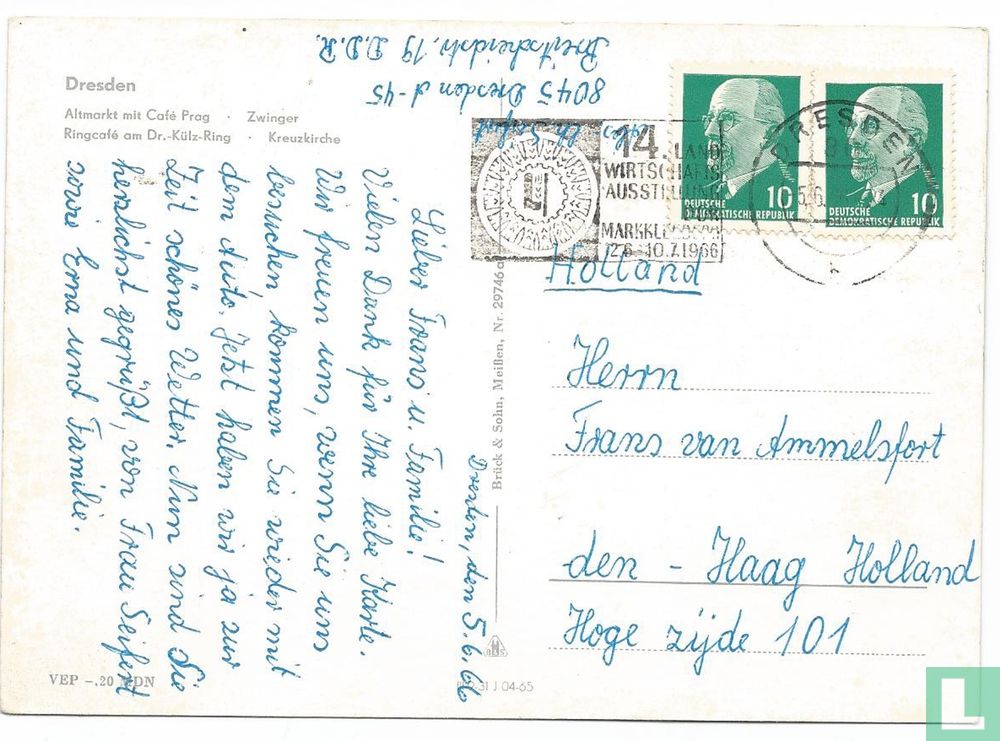 Dresden
Altmarkt mit Café Prag · Zwinger
Ringcafé am Dr.-Külz-Ring · Kreuzkirche
Dresden, den 5.6.66
Lieber Frans u. Familie!
Vielen Dank für Ihre liebe Karte.
Wir freuen uns, wenn Sie uns
besuchen kommen Sie wieder mit
dem Auto. Jetzt haben wir ja zur
Zeit schönes Wetter. Nun sind Sie
herzlichst gegrüßt, von Frau Seifert
sowie Erna und Familie.
VEP –.20 MDN
Brück & Sohn, Meißen, Nr. 29746
B&S
31 J 04-65
Seifert
8045 Dresden A-45
Breitscheidstr. 19 D.D.R.
14. LAND
WIRTSCHAFTS
AUSSTELLUNG
MARKKLEEBERG
12.6-10.7.1966
DRESDEN
10
DEUTSCHE
DEMOKRATISCHE REPUBLIK
10
DEUTSCHE
DEMOKRATISCHE REPUBLIK
Holland
Herrn
Frans van Ammelsfort
den - Haag Holland
Hoge zijde 101
L